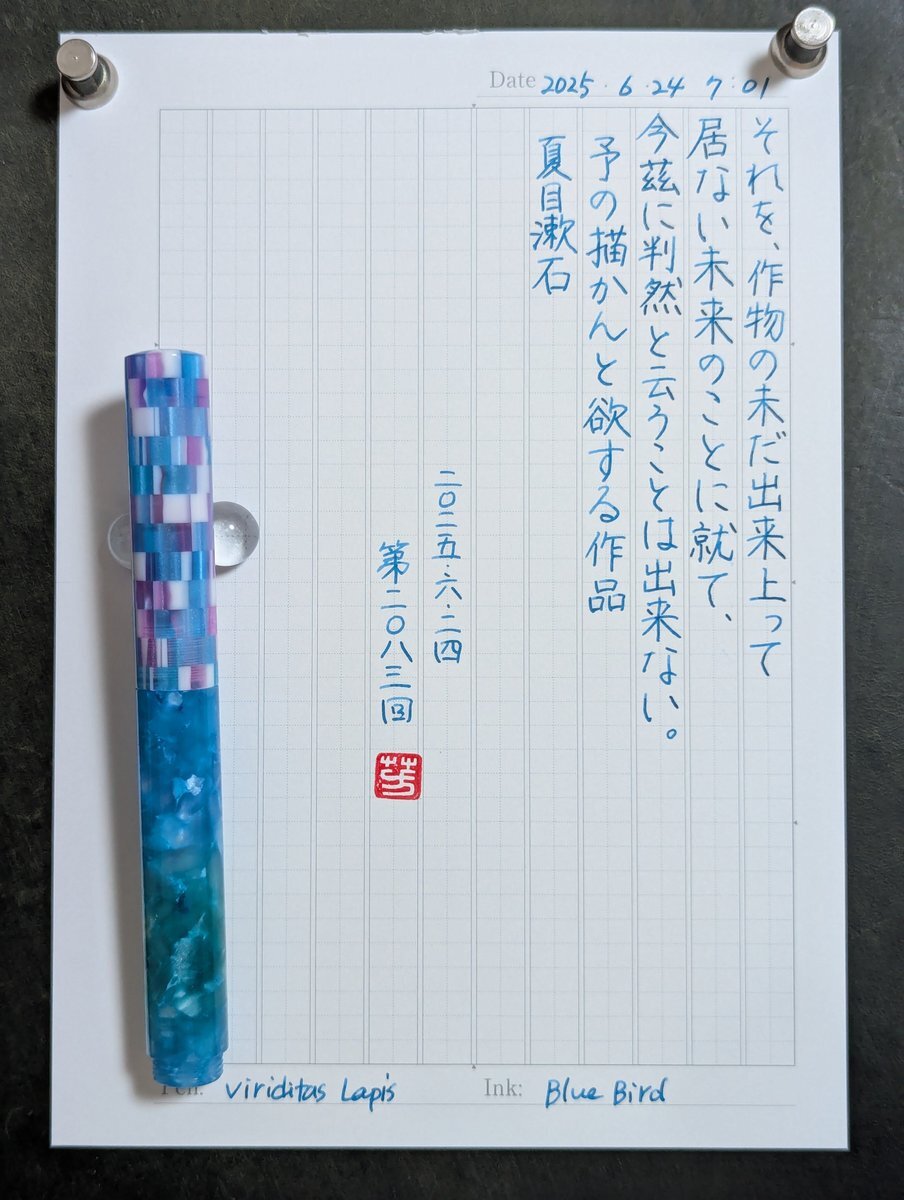 Date 2025・6・24 7:01
それを、作物の未だ出来上って
居ない未来のことに就て、
今茲に判然と云うことは出来ない。
予の描かんと欲する作品
夏目漱石
二〇二五・六・二四
第二〇八三回
芳
Pen: Viriditas Lapis
Ink: Blue Bird